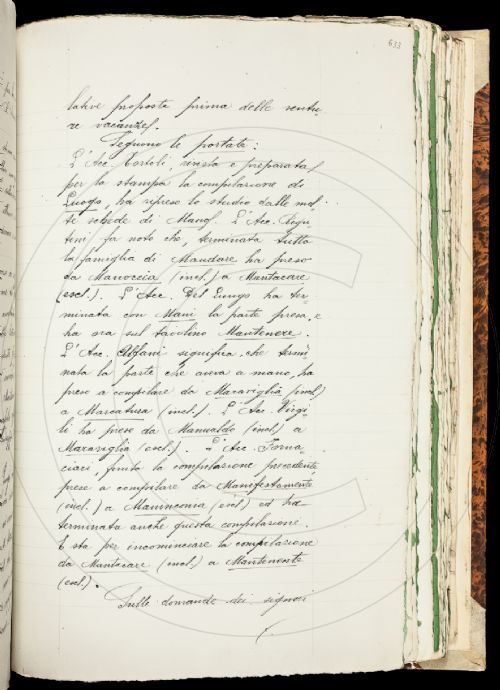 633
lative proposte prima delle ventu-
re vacanze.
Seguono le portate:
L'Acc. Tortoli, rivista e preparata
per la stampa la compilazione di
Luogo, ha ripreso lo studio dalle mol-
te schede di Mang. L'Acc. Rigu-
tini fa noto che, terminata tutta
la famiglia di Mandare ha preso
da Manoccia (incl.) a Mantacare
(escl.). L'Acc. Del Lungo ha ter-
minata con Mani la parte presa, e
ha ora sul tavolino Mantenere.
L'Acc. Alfani significa che termi-
nata la parte che aveva a mano, ha
preso a compilare da Maraviglia (incl.)
a Marcatura (incl.). L'Acc. Virgi-
li ha preso da Manualdo (incl.) a
Maraviglia (escl.). L'Acc. Forna-
ciari, finita la compilazione precedente,
prese a compilare da Manifestamente
(incl.) a Maninconia (escl.) ed ha
terminata anche questa compilazione.
E sta per incominciare la compilazione
da Mantacare (incl.) a Mantenente
(escl.).
Sulle domande dei signori